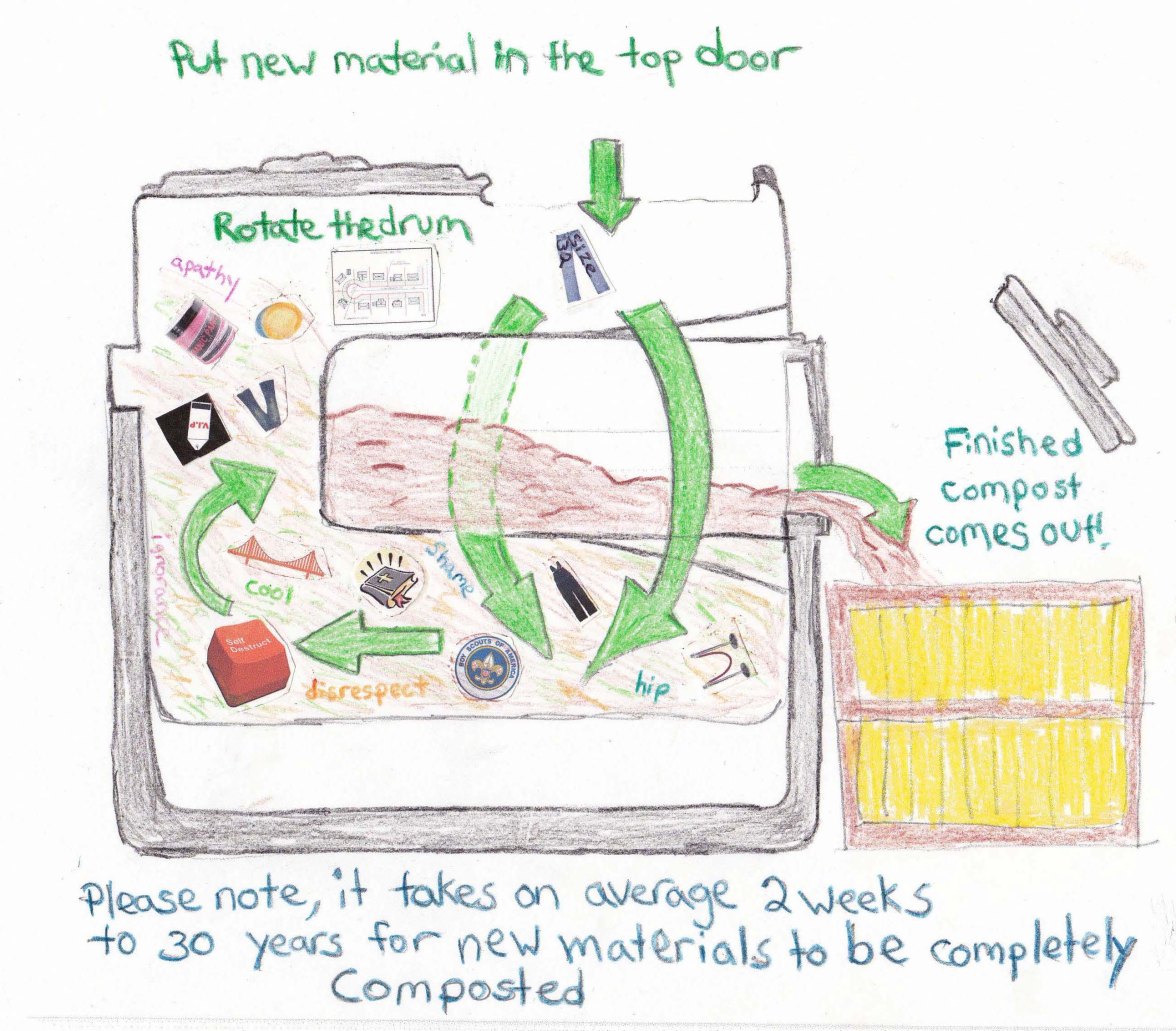 Put new material in the top door
Rotate the drum
apathy
Size
32
V.I.P
Finished
compost
comes out!
ignorance
cool
shame
Self
Destruct
BOY SCOUTS OF AMERICA
disrespect
hip
Please note, it takes on average 2 weeks
to 30 years for new materials to be completely
Composted